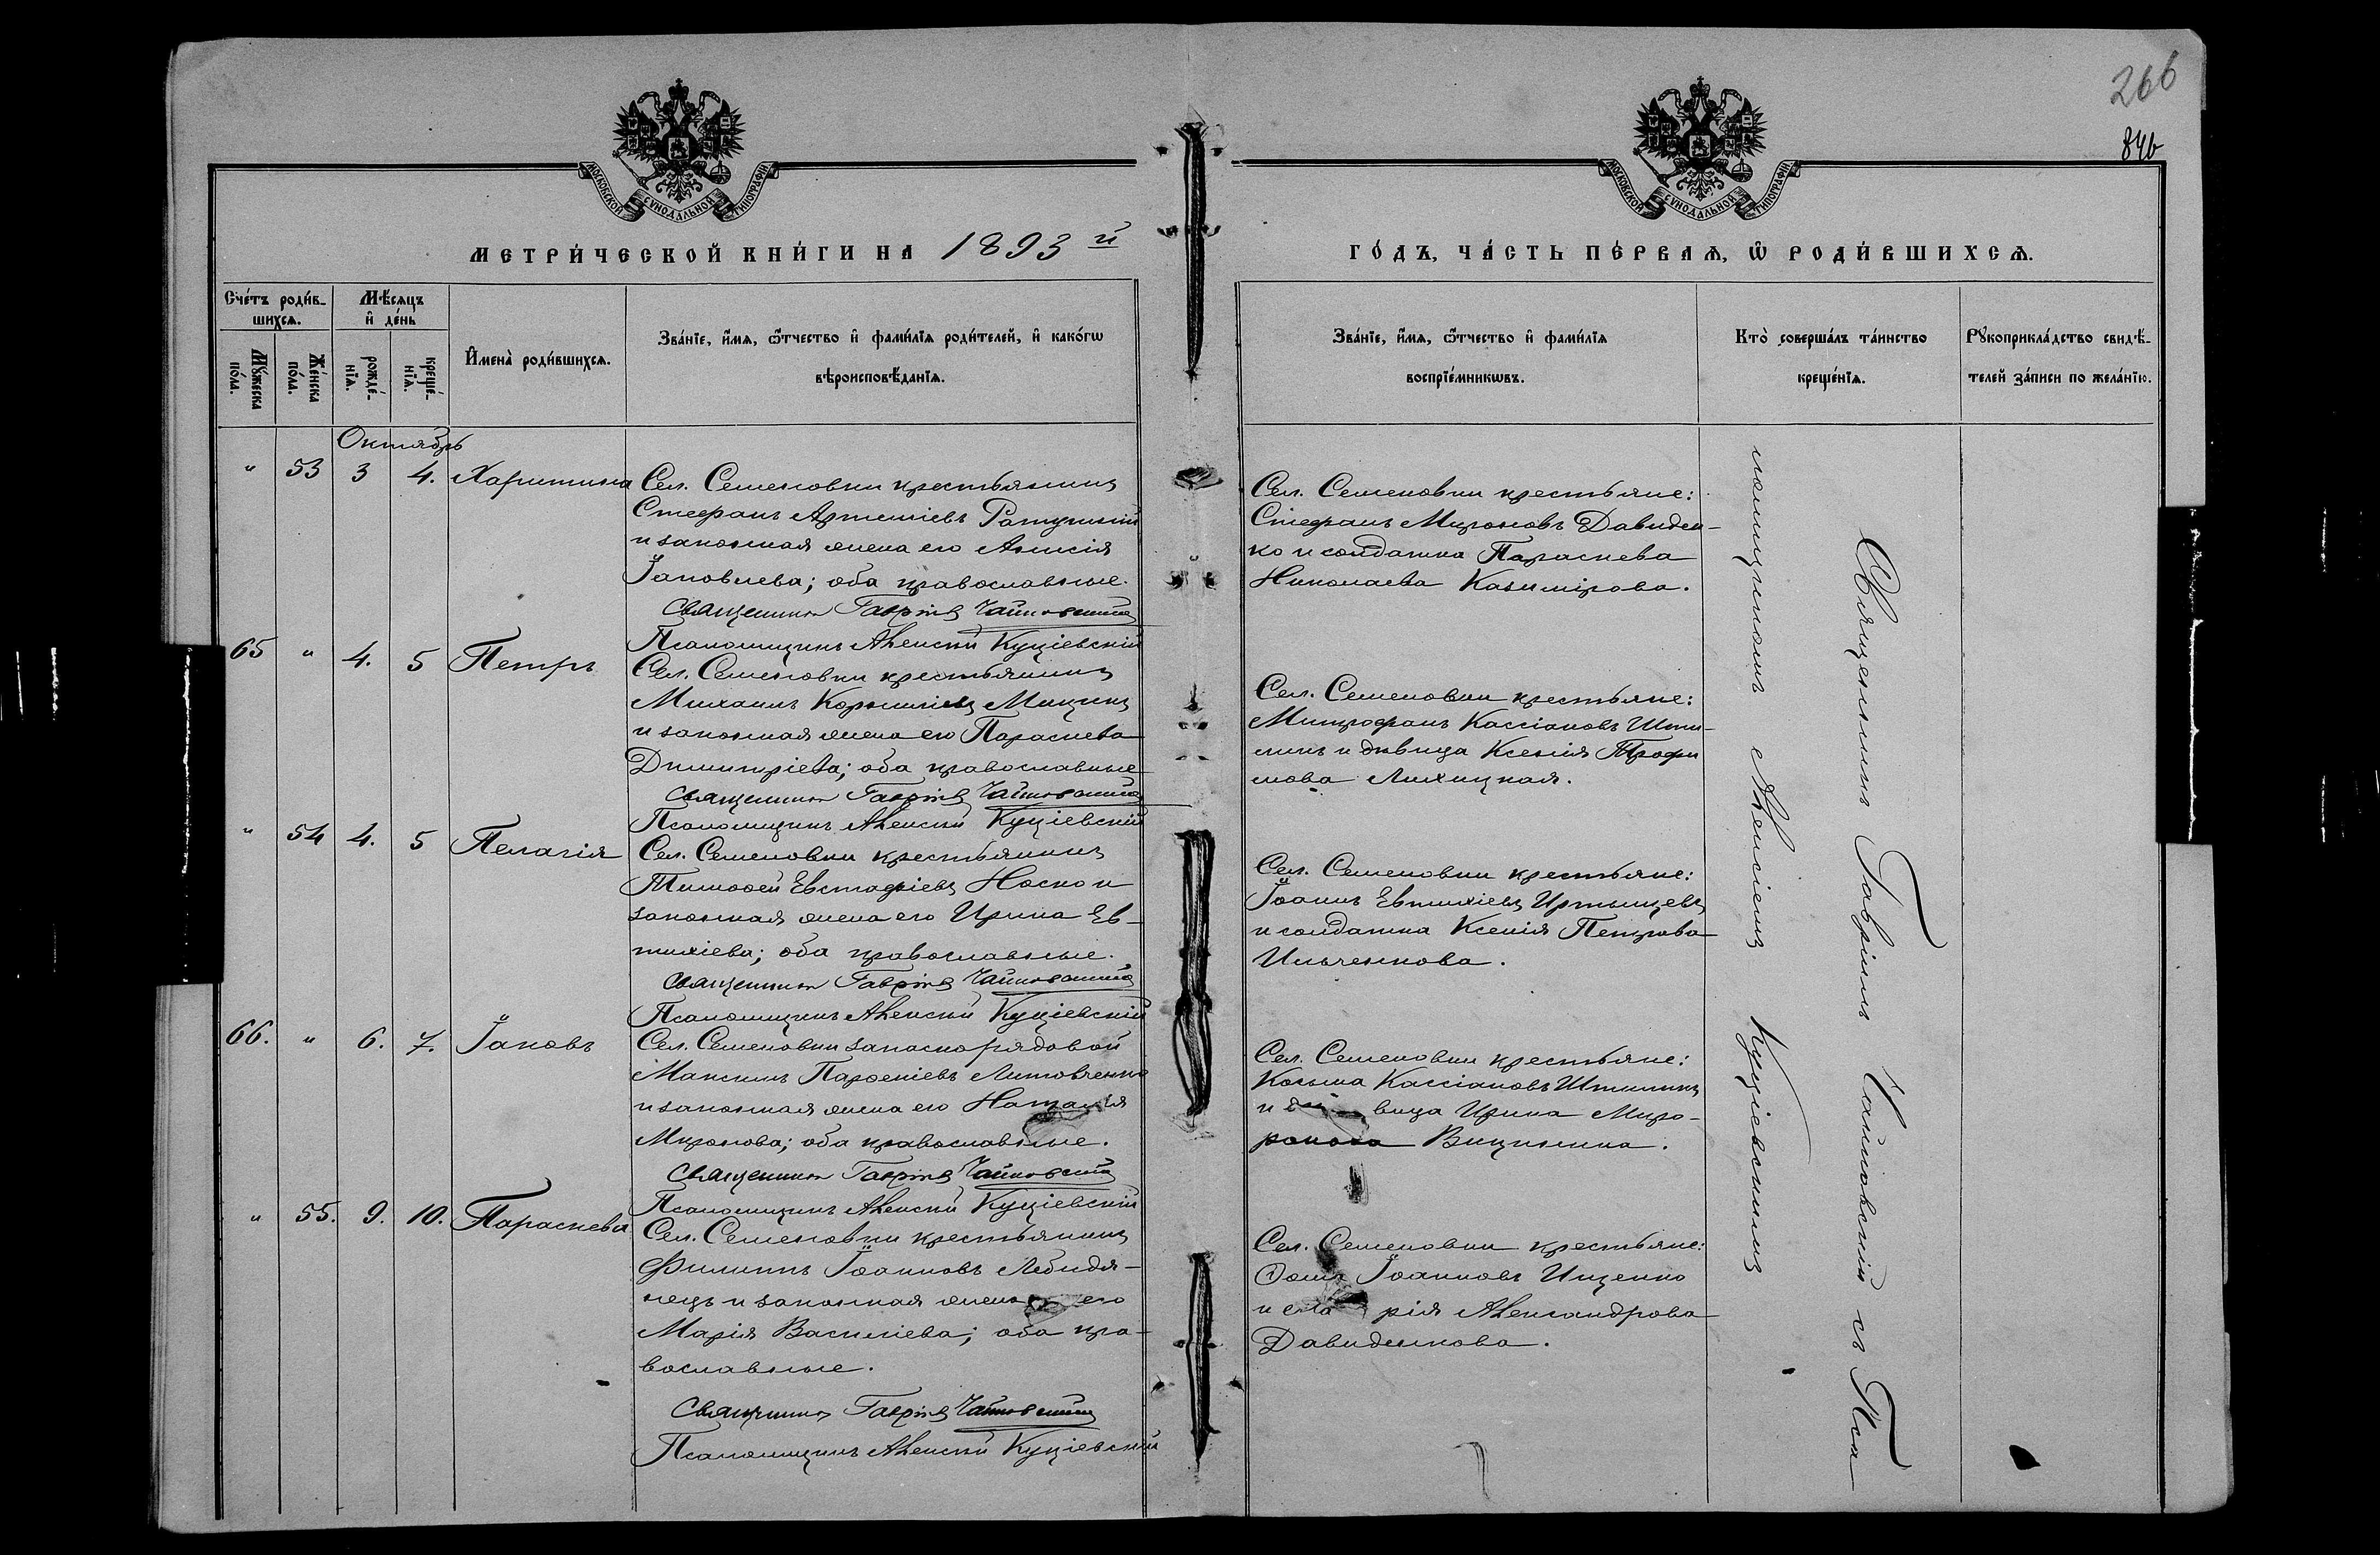 266
846
МОСКОВСКОЙ СѴНОДАЛЬНОЙ ТИПОГРАФІИ
МОСКОВСКОЙ СѴНОДАЛЬНОЙ ТИПОГРАФІИ
МЕТРИ́ЧЕСКОЙ КНИ́ГИ НА 1893 й
ГО́ДЪ, ЧА́СТЬ ПЕ́РВАѦ, Ѿ РОДИ́ВШИХСѦ.
Сче́тъ роди́в-
шихсѧ.
Мꙋ́жеска по́ла.
Же́нска по́ла.
Мѣ́сѧцъ
и҆ де́нь
рожде́-
нїѧ.
креще́-
нїѧ.
И҆мена̀ роди́вшихсѧ.
Зва́нїе, и҆́мѧ, ѻ҆́тчество и҆ фами́лїѧ роди́телей, и҆ како́гѡ
вѣроисповѣ́данїѧ.
Зва́нїе, и҆́мѧ, ѻ҆́тчество и҆ фами́лїѧ
воспрїе́мникѡвъ.
Кто̀ соверша́лъ та́инство
креще́нїѧ.
Рꙋкоприкла́дство свидѣ́-
телей за́писи по жела́нїю.
Октябрь
" 53 3 4. Харитина
Сел. Семеновки крестьянинъ
Стефанъ Артеміевъ
и законная жена его Анисія
Іаковлева; оба православные.
Священникъ Гавріилъ Чайковскій
Псаломщикъ Алексѣй Куціевскій
Сел. Семеновки крестьяне:
Стефанъ Мироновъ Давиден-
ко и солдатка Параскева
Николаева Казимірова.
65 " 4. 5 Петръ
Сел. Семеновки крестьянинъ
Михаилъ Корниліевъ Мицикъ
и законная жена его Параскева
Димитріева; оба православные
Священникъ Гавріилъ Чайковскій
Псаломщикъ Алексѣй Куціевскій
Сел. Семеновки крестьяне:
Митрофанъ Кассіановъ
и дѣвица Ксенія Трофи
мова Лихицкая.
" 54 4. 5 Пелагія
Сел. Семеновки крестьянинъ
Тимоѳей Евстафіевъ Носко и
законная жена его Ирина Ев-
тихіева; оба православные.
Священникъ Гавріилъ Чайковскій
Псаломщикъ Алексѣй Куціевскій
Сел. Семеновки крестьяне:
Іоаннъ Евтихіевъ Иртыщевъ
и солдатка Ксенія Петрова
Ильченкова.
66. " 6. 7. Іаковъ
Сел. Семеновки запасно рядовой
Максимъ Парѳеніевъ Литовченко
и законная жена его Наталія
Миронова; оба православные.
Священникъ Гавріилъ Чайковскій
Псаломщикъ Алексѣй Куціевскій
Сел. Семеновки крестьяне:
Косьма Кассіановъ
и дѣвица Ирина Миро-
нова
" 55. 9. 10. Параскева
Сел. Семеновки крестьянинъ
Филиппъ Іоанновъ Лебидя-
нецъ и законная жена его
Марія Василіева; оба пра-
вославные.
Священникъ Гавріилъ Чайковскій
Псаломщикъ Алексѣй Куціевскій
Сел. Семеновки крестьяне:
Ѳома Іоанновъ Ищенко
и Марія Александрова
Давиденкова.
Священникъ Гавріилъ Чайковскій съ Пса-
ломщикомъ Алексіемъ Куціевскимъ